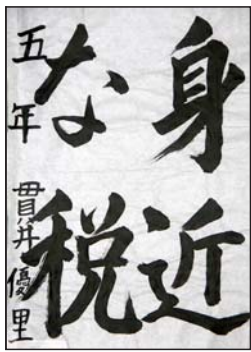 身近
な税
五年 貫井優里